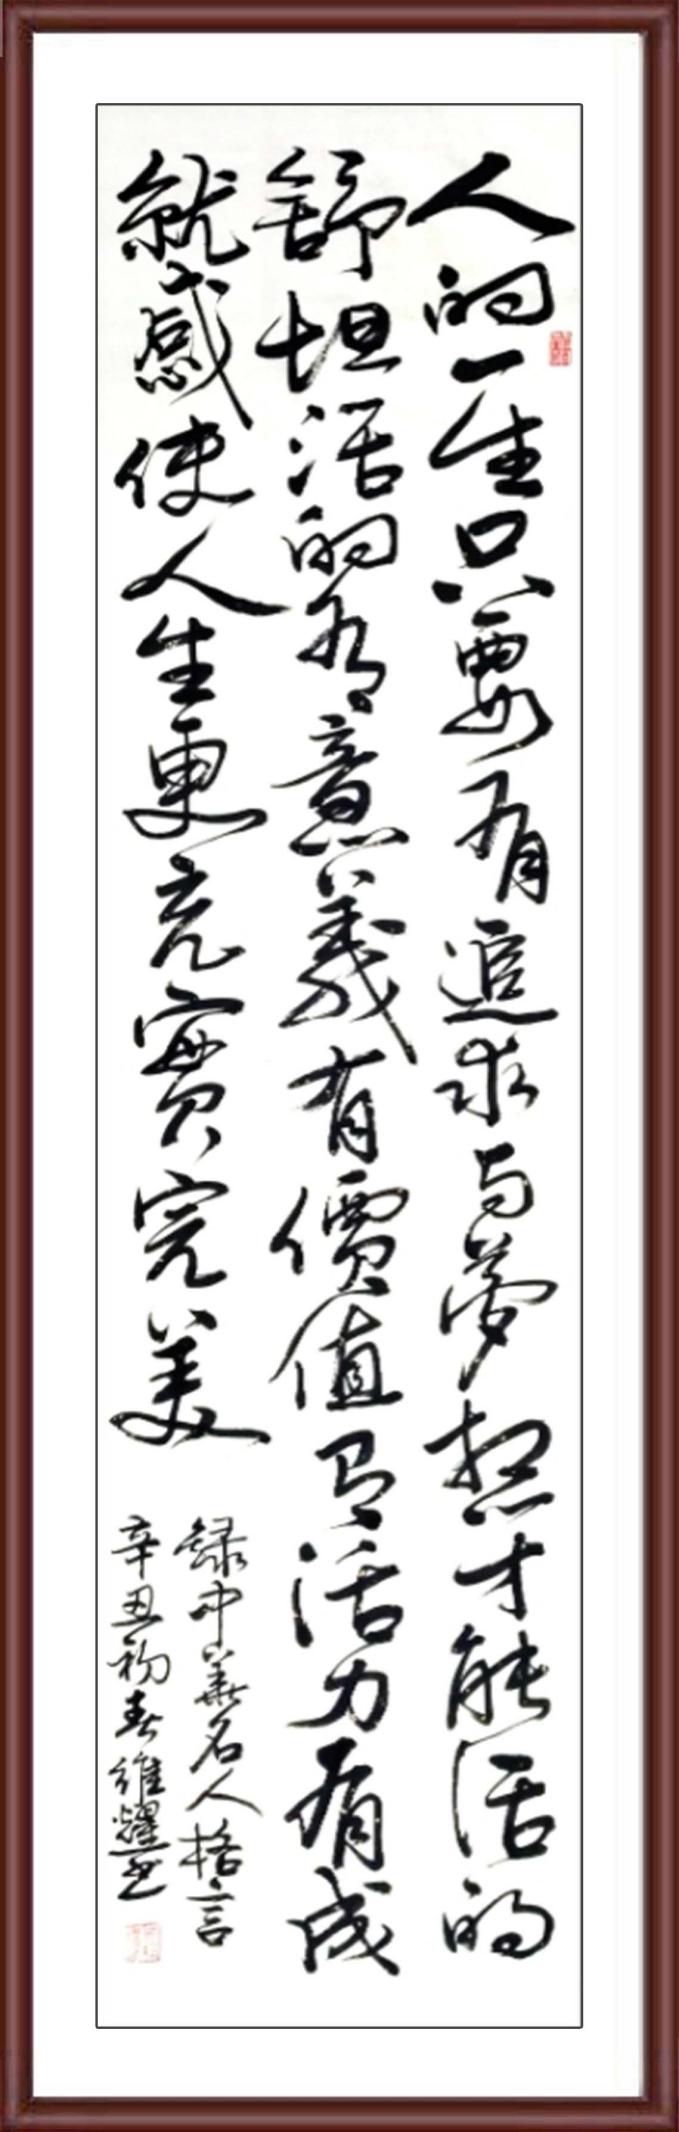 人的一生只要有追求与夢想才能活的
舒坦活的有意義有價值有活力有成
就感使人生更充實完美
録中華名人格言
辛丑初春維耀书